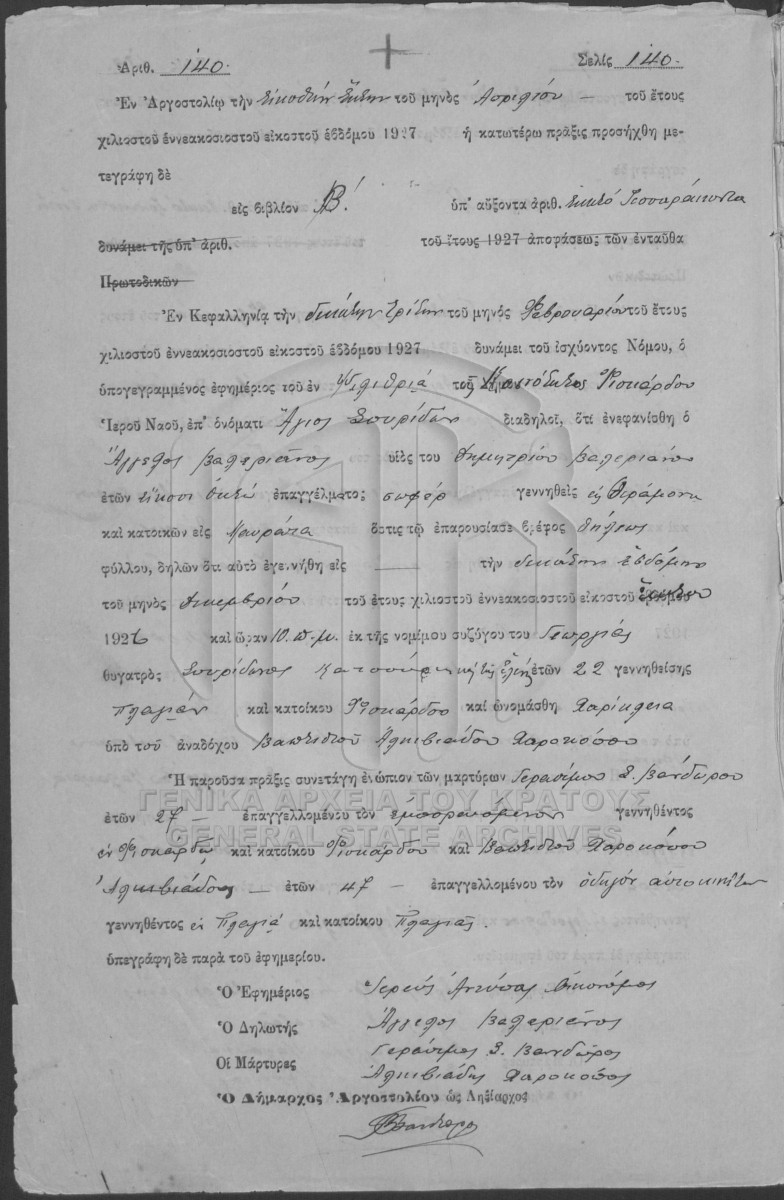 Ἀριθ. 140. Σελὶς 140.
Ἐν Ἀργοστολίῳ τὴν εἰκοστὴν ἕκτην τοῦ μηνὸς Ἀπριλίου — τοῦ ἔτους
χιλιοστοῦ ἐννεακοσιοστοῦ εἰκοστοῦ ἑβδόμου 1927 ἡ κατωτέρω πρᾶξις προσήχθη με-
τεγράφη δὲ
εἰς βιβλίον Β! ὑπ' αὔξοντα ἀριθ. ἑκατὸ Τεσσαράκοντα
δυνάμει τῆς ὑπ' ἀριθ. τοῦ ἔτους 1927 ἀποφάσεως τῶν ἐνταῦθα
Πρωτοδικῶν
Ἐν Κεφαλληνίᾳ τὴν δεκάτην τρίτην τοῦ μηνὸς Φεβρουαρίου τοῦ ἔτους
χιλιοστοῦ ἐννεακοσιοστοῦ εἰκοστοῦ ἑβδόμου 1927 δυνάμει τοῦ ἰσχύοντος Νόμου, ὁ
ὑπογεγραμμένος ἐφημέριος τοῦ ἐν τῆς Φισκάρδου
Ἱεροῦ Ναοῦ, ἐπ' ὀνόματι Ἅγιος Σπυρίδων διαδηλοῖ, ὅτι ἐνεφανίσθη ὁ
Ἄγγελος Βαλεριάνος υἱὸς του Δημητρίου Βαλεριάνου
ἐτῶν εἴκοσι ὀκτὼ ἐπαγγέλματος σωφέρ γεννηθεὶς
καὶ κατοικῶν εἰς Μαυράτα ὅστις τῷ ἐπαρουσίασε βρέφος θήλεως
φύλλου, δηλῶν ὅτι αὐτὸ ἐγεννήθη εἰς — τὴν δεκάτην ἑβδόμην
τοῦ μηνὸς Δεκεμβρίου τοῦ ἔτους χιλιοστοῦ ἐννεακοσιοστοῦ εἰκοστοῦ ἑβδόμου ἕκτου
1926 καὶ ὥραν 10. π.μ. ἐκ τῆς νομίμου συζύγου του Γεωργίας
θυγατρὸς Σπυρίδωνος καὶ τῆς Ἑλένης ἐτῶν 22 γεννηθείσης
Πλαγιάν καὶ κατοίκου Φισκάρδου καὶ ὠνομάσθη Χαρίκλεια
ὑπὸ τοῦ ἀναδόχου Βαπτιστοῦ Ἀλκιβιάδου Χαροκόπου
Ἡ παροῦσα πρᾶξις συνετάγη ἐνώπιον τῶν μαρτύρων Γερασίμου Σ. Βανδώρου
ἐτῶν 27 — ἐπαγγελλομένου τὸν ἐμπορευόμενον γεννηθέντος
ἐν Φισκάρδῳ καὶ κατοίκου Φισκάρδου καὶ Βαπτιστοῦ Χαροκόπου
Ἀλκιβιάδου — ἐτῶν 47 — ἐπαγγελλομένου τὸν ὁδηγὸν αὐτοκινήτων
γεννηθέντος ἐν Πλαγιᾷ καὶ κατοίκου Πλαγιᾶς.
ὑπεγράφη δὲ παρὰ τοῦ ἐφημερίου.
Ὁ Ἐφημέριος Ἱερεὺς Ἀντύπας Οἰκονόμος
Ὁ Δηλωτὴς Ἄγγελος Βαλεριάνος
Οἱ Μάρτυρες Γεράσιμος Σ. Βανδῶρος
Ἀλκιβιάδης Χαροκόπος
Ὁ Δήμαρχος Ἀργοστολίου ὡς Ληξίαρχος
ΓΕΝΙΚΑ ΑΡΧΕΙΑ ΤΟΥ ΚΡΑΤΟΥΣ
GENERAL STATE ARCHIVES